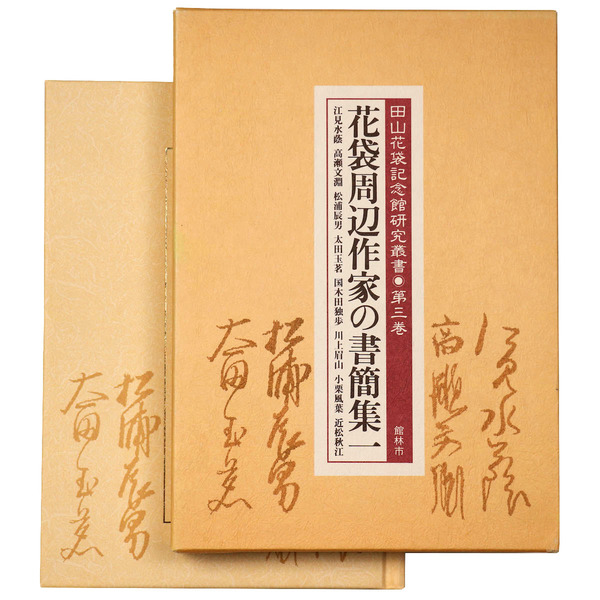 田山花袋記念館研究叢書◉第三巻
花袋周辺作家の書簡集一
江見水蔭 高瀬文淵 松浦辰男 太田玉茗 国木田独歩 川上眉山 小栗風葉 近松秋江
館林市
江見水蔭
高瀬文淵
松浦辰男
太田玉茗
松浦辰男
太田玉茗